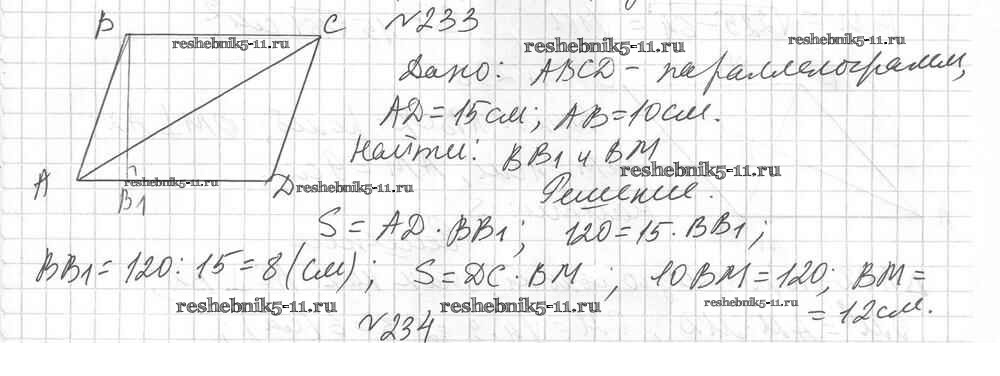 B C №233
reshebnik5-11.ru reshebnik5-11.ru reshebnik5-11.ru
Дано: ABCD - параллелограмм,
AD=15см; AB=10см.
Найти: BB1 и BM
reshebnik5-11.ru
A reshebnik5-11.ru D reshebnik5-11.ru Решение.
B1
S = AD · BB1; 120=15 · BB1;
BB1 = 120 : 15 = 8 (см); S = DC · BM; 10BM=120; BM=
reshebnik5-11.ru reshebnik5-11.ru reshebnik5-11.ru = 12см.
№234